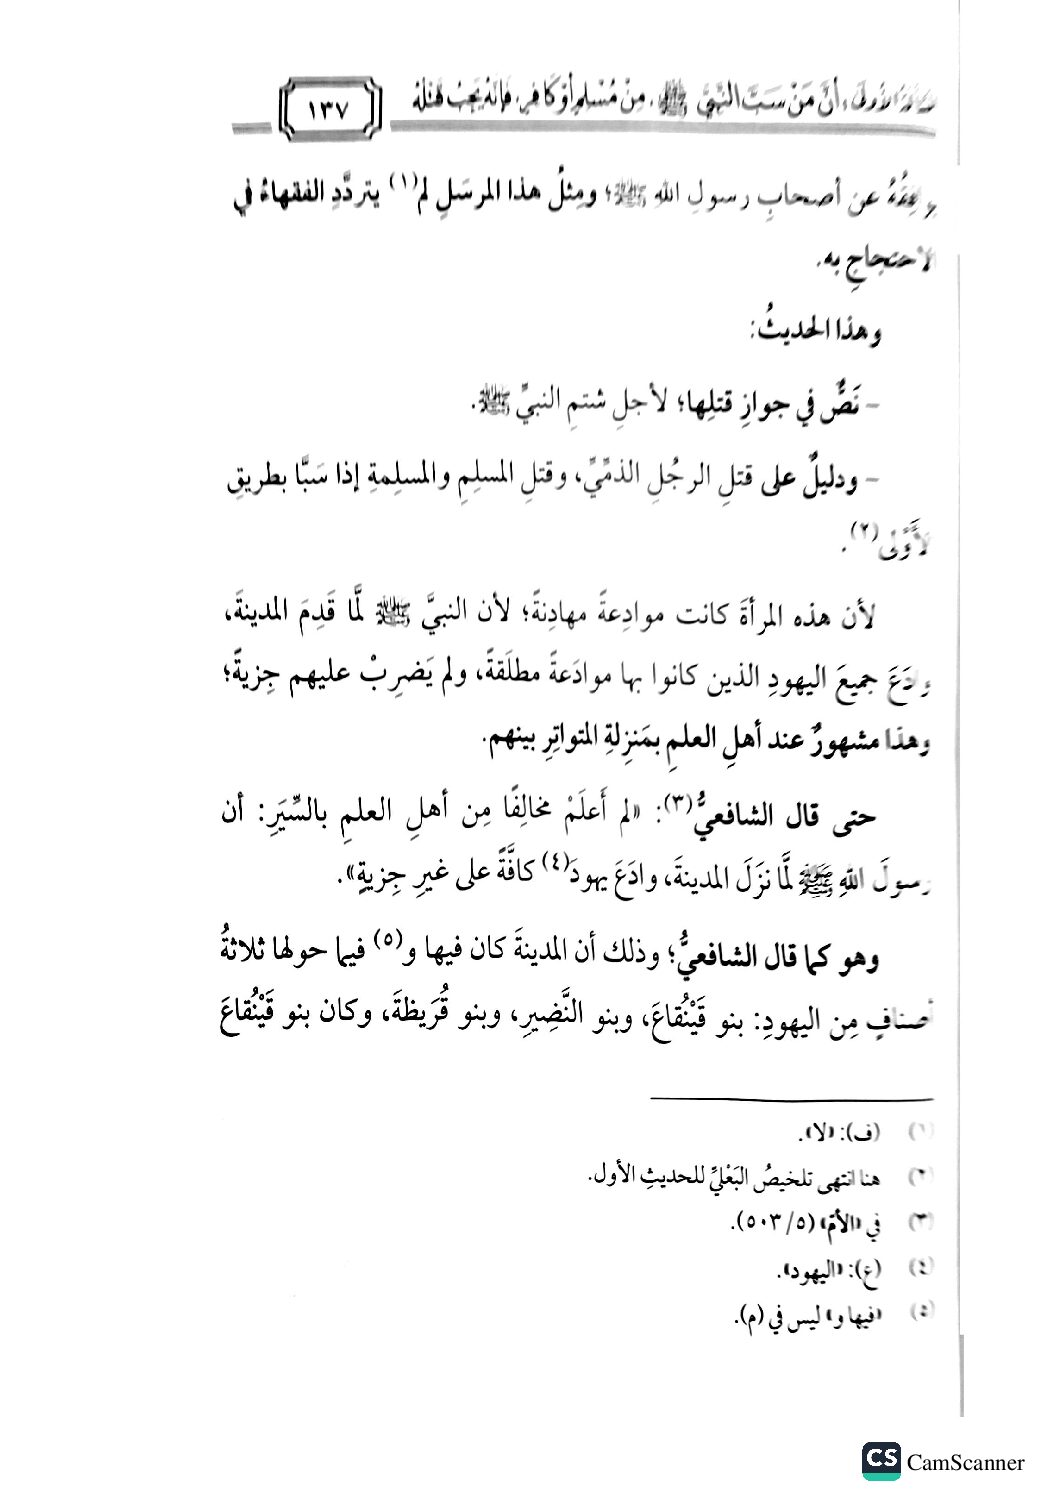 الأولى: أنَّ مَنْ سَبَّ النَّبِيَّ ﷺ، مِنْ مُسْلِمٍ أَوْ كَافِرٍ، فَإِنَّهُ يَجِبُ قَتْلُهُ ١٣٧
عن أصحابِ رسولِ اللهِ ﷺ؛ ومِثلُ هذا المرسَلِ لم(١) يتردَّدِ الفقهاءُ في
الاحتجاجِ به.
وهذا الحديثُ:
- نَصٌّ في جوازِ قتلِها؛ لأجلِ شتمِ النبيِّ ﷺ.
- ودليلٌ على قتلِ الرجُلِ الذمِّيِّ، وقتلِ المسلِمِ والمسلِمةِ إذا سَبَّا بطريقِ
الأَوْلى(٢).
لأن هذه المرأةَ كانت موادِعةً مهادِنةً؛ لأن النبيَّ ﷺ لَمَّا قَدِمَ المدينةَ،
وادَعَ جميعَ اليهودِ الذين كانوا بها موادَعةً مطلَقةً، ولم يَضرِبْ عليهم جِزيةً؛
وهذا مشهورٌ عند أهلِ العلمِ بمَنزِلةِ المتواتِرِ بينهم.
حتى قال الشافعيُّ(٣): «لم أَعلَمْ مخالِفًا مِن أهلِ العلمِ بالسِّيَرِ: أن
رسولَ اللهِ ﷺ لَمَّا نزَلَ المدينةَ، وادَعَ يهودَ(٤) كافَّةً على غيرِ جِزيةٍ».
وهو كما قال الشافعيُّ؛ وذلك أن المدينةَ كان فيها و(٥) فيما حولها ثلاثةُ
أصنافٍ مِن اليهودِ: بنو قَيْنُقاعَ، وبنو النَّضِيرِ، وبنو قُرَيظةَ، وكان بنو قَيْنُقاعَ
(١) (ف): «لا».
(٢) هنا انتهى تلخيصُ البَعْليِّ للحديثِ الأول.
(٣) في «الأم» (٥/ ٥٠٣).
(٤) (ع): «اليهود».
(٥) «فيها و» ليس في (م).
CS CamScanner